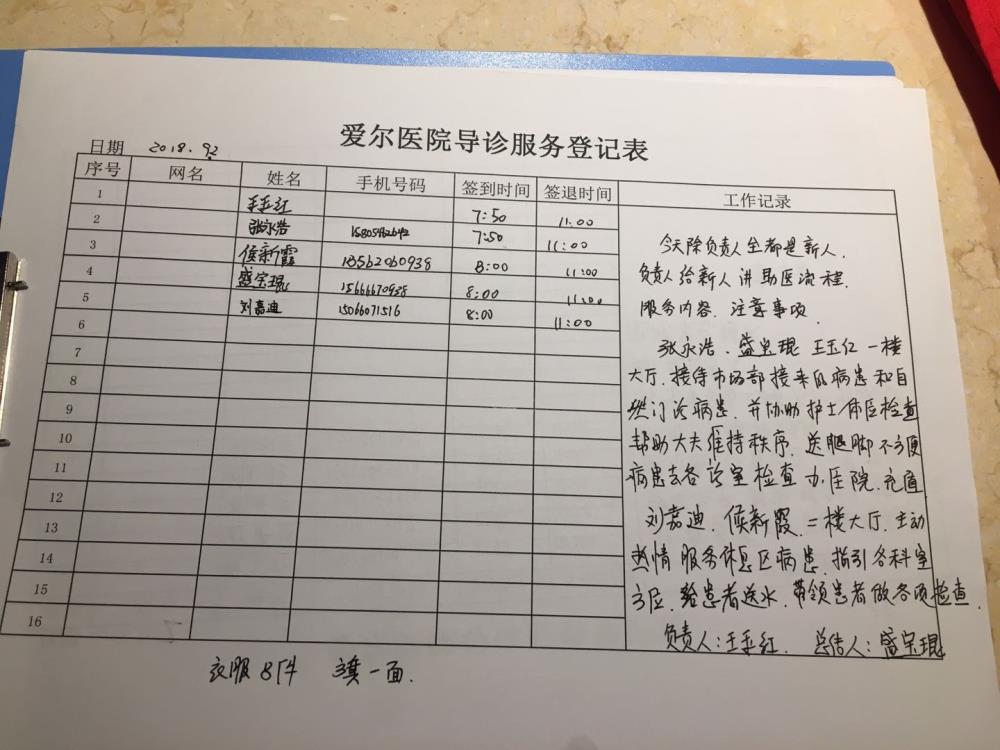 爱尔医院导诊服务登记表
日期 2018.9.2
序号 网名 姓名 手机号码 签到时间 签退时间 工作记录
1 王玉红 7:50 11:00
2 张永浩 7:50 11:00
3 侯新霞 8:00 11:00
4 盛宝琨 8:00 11:00
5 刘嘉迪 15066071516 8:00 11:00
6
7
8
9
10
11
12
13
14
15
16
今天除负责人全都是新人.
负责人给新人讲助医流程.
服务内容.注意事项.
张永浩.盛宝琨 王玉红 一楼
大厅.接待市场部接来的病患和自
然门诊病患.并协助护士体医检查
帮助大夫维持秩序.送腿脚不方便
病患去各诊室检查 办住院.充值
刘嘉迪.侯新霞.二楼大厅.主动
热情服务休息区病患.指引各科室
方位.给患者送水.带领患者做各项检查.
负责人:王玉红. 总结人:盛宝琨
衣服8件 旗一面.